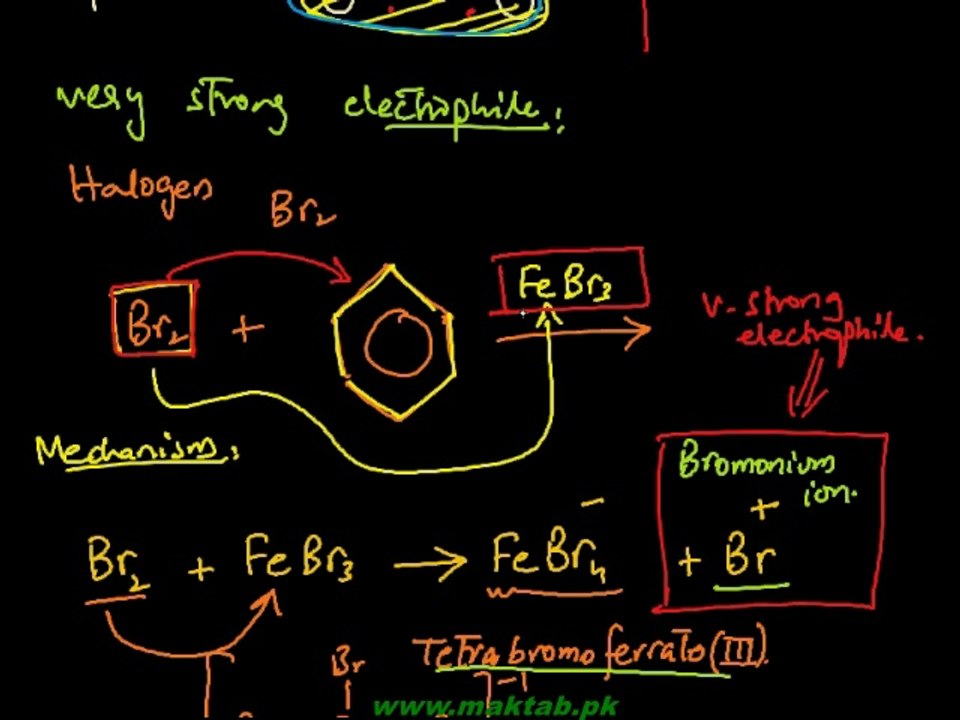 very strong electrophile:
Halogen Br₂
Br₂ + FeBr₃
v. strong
electrophile.
Mechanism:
Bromonium
ion.
Br₂ + FeBr₃ → FeBr₄⁻ + Br⁺
Br Tetrabromoferrato(III).
]⁻¹
www.maktab.pk